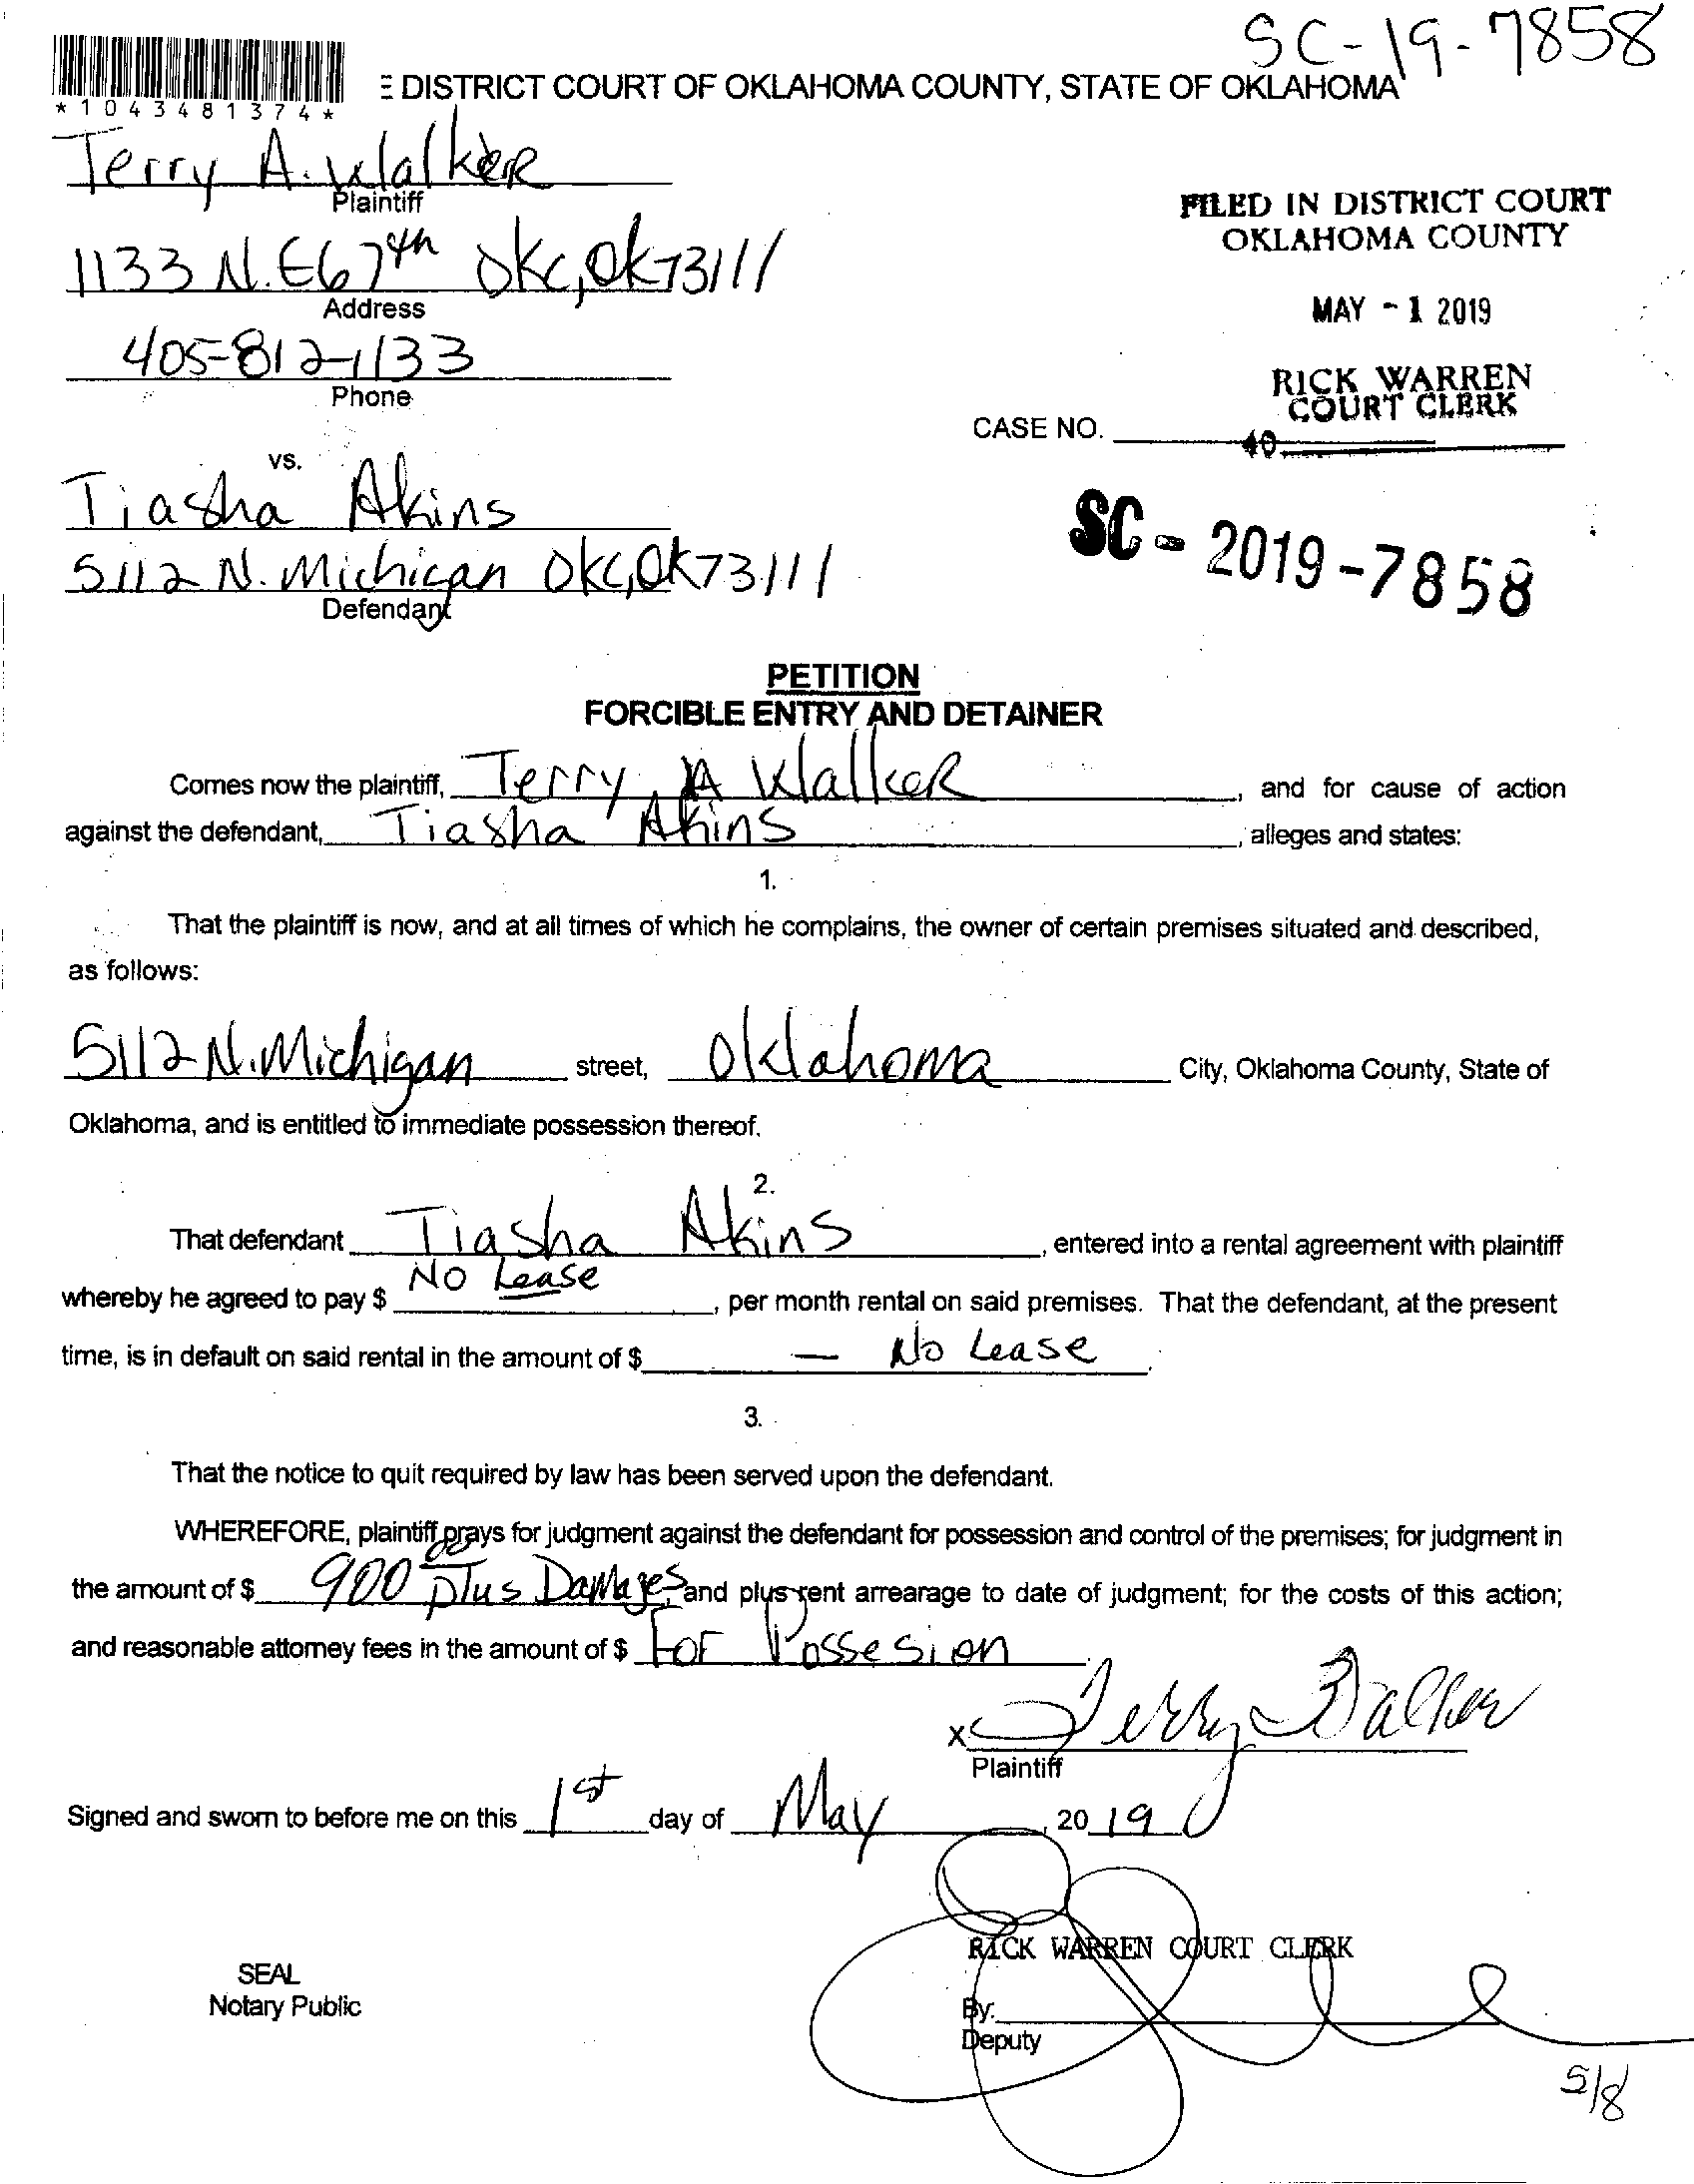 SC-19-7858
*1043481374*
E DISTRICT COURT OF OKLAHOMA COUNTY, STATE OF OKLAHOMA
Terry A. Walker
Plaintiff
1133 N.E 67th OKC, OK 73111
Address
405-812-1133
Phone
FILED IN DISTRICT COURT
OKLAHOMA COUNTY
MAY - 1 2019
RICK WARREN
COURT CLERK
CASE NO.
40
vs.
Tiasha Akins
5112 N. Michigan OKC, OK 73111
Defendant
SC - 2019 - 7858
PETITION
FORCIBLE ENTRY AND DETAINER
Comes now the plaintiff, Terry A Walker, and for cause of action
against the defendant, Tiasha Akins, alleges and states:
1.
That the plaintiff is now, and at all times of which he complains, the owner of certain premises situated and described,
as follows:
5112 N. Michigan street, Oklahoma City, Oklahoma County, State of
Oklahoma, and is entitled to immediate possession thereof.
2.
That defendant Tiasha Akins, entered into a rental agreement with plaintiff
whereby he agreed to pay $ No Lease, per month rental on said premises. That the defendant, at the present
time, is in default on said rental in the amount of $ — No Lease.
3.
That the notice to quit required by law has been served upon the defendant.
WHEREFORE, plaintiff prays for judgment against the defendant for possession and control of the premises; for judgment in
the amount of $ 900 00 plus Damages, and plus rent arrearage to date of judgment; for the costs of this action;
and reasonable attorney fees in the amount of $ For Possesion
X Terry Walker
Plaintiff
Signed and sworn to before me on this 1st day of May, 2019
RICK WARREN COURT CLERK
SEAL
Notary Public
By:
Deputy
5/8